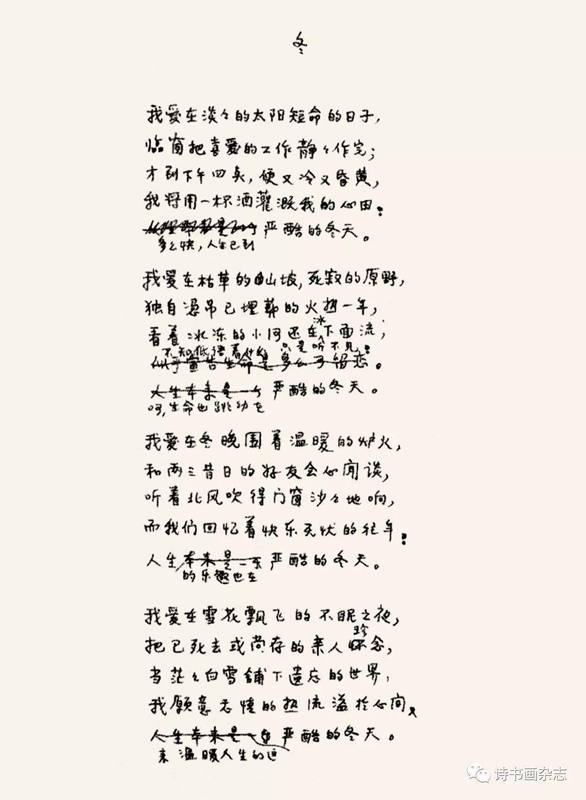 冬
我爱在淡々的太阳短命的日子，
临窗把喜爱的工作静々作完；
才到下午四点，便又冷又昏黄，
我将用一杯酒灌溉我的心田：
严酷的冬天。
多么快，人生已到
我爱在枯草的山坡，死寂的原野，
独自凭吊已埋葬的火热一年，
看着冰冻的小河还在冰下面流，
不知低语着什么 只是听不见：
似乎宣告生命是多么可留恋。
人生本来是一个严酷的冬天。
呵，生命也跳动在
我爱在冬晚围着温暖的炉火，
和两三昔日的好友会心闲谈，
听着北风吹得门窗沙々地响，
而我们回忆着快乐无忧的往年：
人生本来是一个严酷的冬天。
的乐趣也在
我爱在雪花飘飞的不眠之夜，
珍
把已死去或尚存的亲人怀念，
当茫々白雪铺下遗忘的世界，
我愿意情的热流溢于心间，
人生本来是一个严酷的冬天。
来温暖人生的这
诗书画杂志